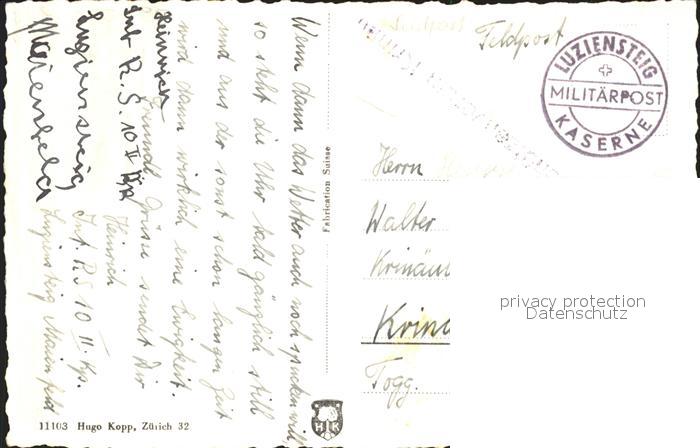 Feldpost Feldpost
LUZIENSTEIG
MILITÄRPOST
KASERNE
Herrn
Walter
Krinäu
Krin
Togg.
privacy protection
Datenschutz
Fabrication Suisse
Wenn dann das Wetter auch noch spucken will,
so steht die Uhr bald gänzlich still
und aus der sonst schon langen Zeit
wird dann wirklich eine Ewigkeit.
Freundl. Grüsse sendet Dir
Heinrich
Inf. R.S. 10 II. Kp.
Luziensteig Maienfeld
Heinrich
Inf. R.S. 10 II Kp
Luziensteig
Maienfeld
HK
11103 Hugo Kopp, Zürich 32